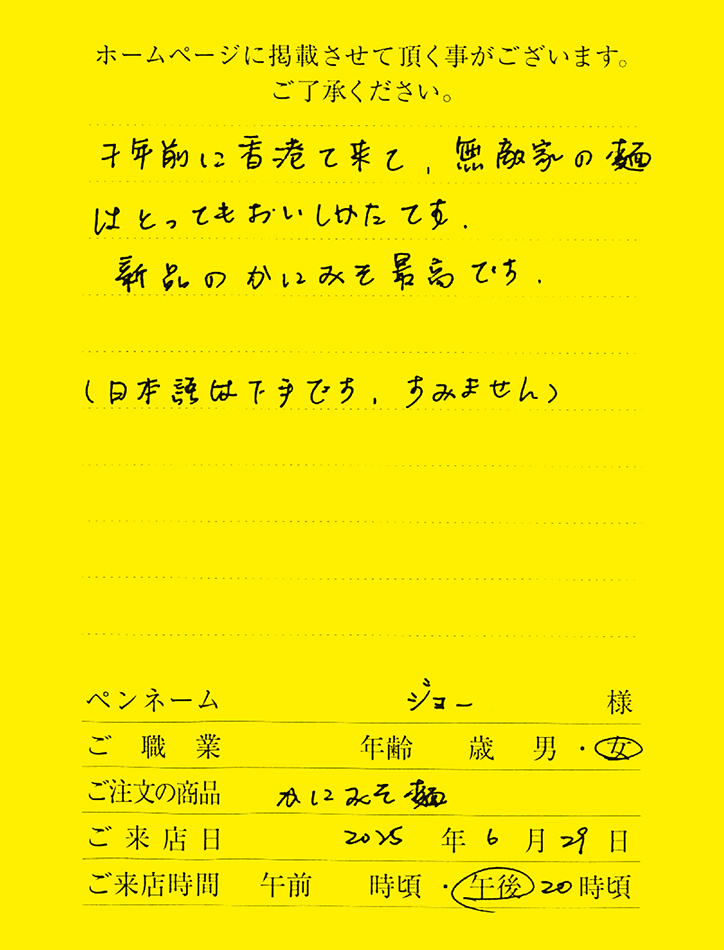 ホームページに掲載させて頂く事がございます。
ご了承ください。
十年前に香港て来て、無敵家の麺
はとってもおいしかたてす.
新品のかにみそ最高です.
(日本語は下手です、すみません)
ペンネーム ジョー 様
ご職業 年齢 歳 男・女
ご注文の商品 かにみそ麺
ご来店日 2025年6月29日
ご来店時間 午前 時頃・午後20時頃